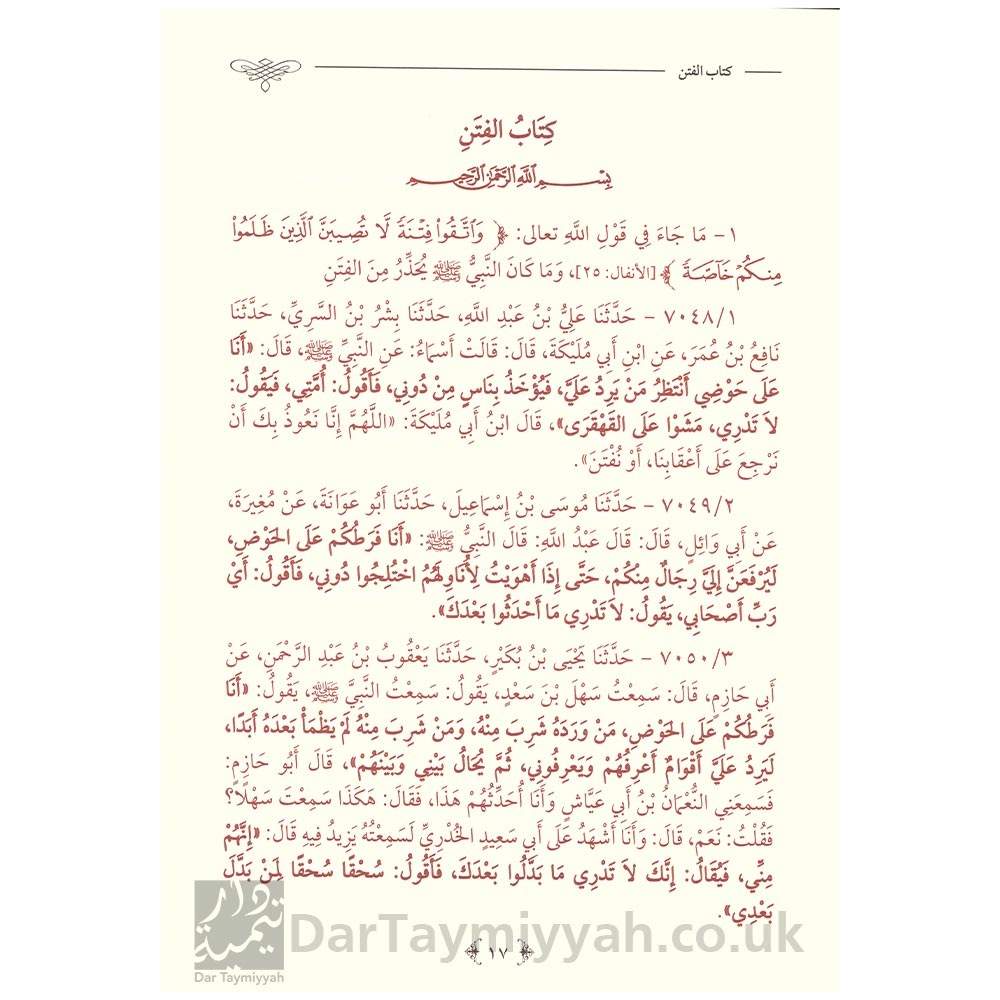 كتاب الفتن
كِتَابُ الفِتَنِ
بِسْمِ ٱللَّهِ ٱلرَّحْمَٰنِ ٱلرَّحِيمِ
١- مَا جَاءَ فِي قَوْلِ اللَّهِ تعالى: ﴿ وَٱتَّقُوا۟ فِتْنَةً لَّا تُصِيبَنَّ ٱلَّذِينَ ظَلَمُوا۟
مِنكُمْ خَآصَّةً ﴾ [الأنفال: ٢٥]، وَمَا كَانَ النَّبِيُّ ﷺ يُحَذِّرُ مِنَ الفِتَنِ
٧٠٤٨/١ - حَدَّثَنَا عَلِيُّ بْنُ عَبْدِ اللَّهِ، حَدَّثَنَا بِشْرُ بْنُ السَّرِيِّ، حَدَّثَنَا
نَافِعُ بْنُ عُمَرَ، عَنِ ابْنِ أَبِي مُلَيْكَةَ، قَالَ: قَالَتْ أَسْمَاءُ: عَنِ النَّبِيِّ ﷺ، قَالَ: «أَنَا
عَلَى حَوْضِي أَنْتَظِرُ مَنْ يَرِدُ عَلَيَّ، فَيُؤْخَذُ بِنَاسٍ مِنْ دُونِي، فَأَقُولُ: أُمَّتِي، فَيَقُولُ:
لاَ تَدْرِي، مَشَوْا عَلَى القَهْقَرَى»، قَالَ ابْنُ أَبِي مُلَيْكَةَ: «اللَّهُمَّ إِنَّا نَعُوذُ بِكَ أَنْ
نَرْجِعَ عَلَى أَعْقَابِنَا، أَوْ نُفْتَنَ».
٧٠٤٩/٢ - حَدَّثَنَا مُوسَى بْنُ إِسْمَاعِيلَ، حَدَّثَنَا أَبُو عَوَانَةَ، عَنْ مُغِيرَةَ،
عَنْ أَبِي وَائِلٍ، قَالَ: قَالَ عَبْدُ اللَّهِ: قَالَ النَّبِيُّ ﷺ: «أَنَا فَرَطُكُمْ عَلَى الحَوْضِ،
لَيُرْفَعَنَّ إِلَيَّ رِجَالٌ مِنْكُمْ، حَتَّى إِذَا أَهْوَيْتُ لِأُنَاوِلَهُمُ اخْتُلِجُوا دُونِي، فَأَقُولُ: أَيْ
رَبِّ أَصْحَابِي، يَقُولُ: لاَ تَدْرِي مَا أَحْدَثُوا بَعْدَكَ».
٧٠٥٠/٣ - حَدَّثَنَا يَحْيَى بْنُ بُكَيْرٍ، حَدَّثَنَا يَعْقُوبُ بْنُ عَبْدِ الرَّحْمَنِ، عَنْ
أَبِي حَازِمٍ، قَالَ: سَمِعْتُ سَهْلَ بْنَ سَعْدٍ، يَقُولُ: سَمِعْتُ النَّبِيَّ ﷺ، يَقُولُ: «أَنَا
فَرَطُكُمْ عَلَى الحَوْضِ، مَنْ وَرَدَهُ شَرِبَ مِنْهُ، وَمَنْ شَرِبَ مِنْهُ لَمْ يَظْمَأْ بَعْدَهُ أَبَدًا،
لَيَرِدُ عَلَيَّ أَقْوَامٌ أَعْرِفُهُمْ وَيَعْرِفُونِي، ثُمَّ يُحَالُ بَيْنِي وَبَيْنَهُمْ»، قَالَ أَبُو حَازِمٍ:
فَسَمِعَنِي النُّعْمَانُ بْنُ أَبِي عَيَّاشٍ وَأَنَا أُحَدِّثُهُمْ هَذَا، فَقَالَ: هَكَذَا سَمِعْتَ سَهْلًا؟
فَقُلْتُ: نَعَمْ، قَالَ: وَأَنَا أَشْهَدُ عَلَى أَبِي سَعِيدٍ الخُدْرِيِّ لَسَمِعْتُهُ يَزِيدُ فِيهِ قَالَ: «إِنَّهُمْ
مِنِّي، فَيُقَالُ: إِنَّكَ لاَ تَدْرِي مَا بَدَّلُوا بَعْدَكَ، فَأَقُولُ: سُحْقًا سُحْقًا لِمَنْ بَدَّلَ
بَعْدِي».
١٧
دار تيمية
Dar Taymiyyah
DarTaymiyyah.co.uk